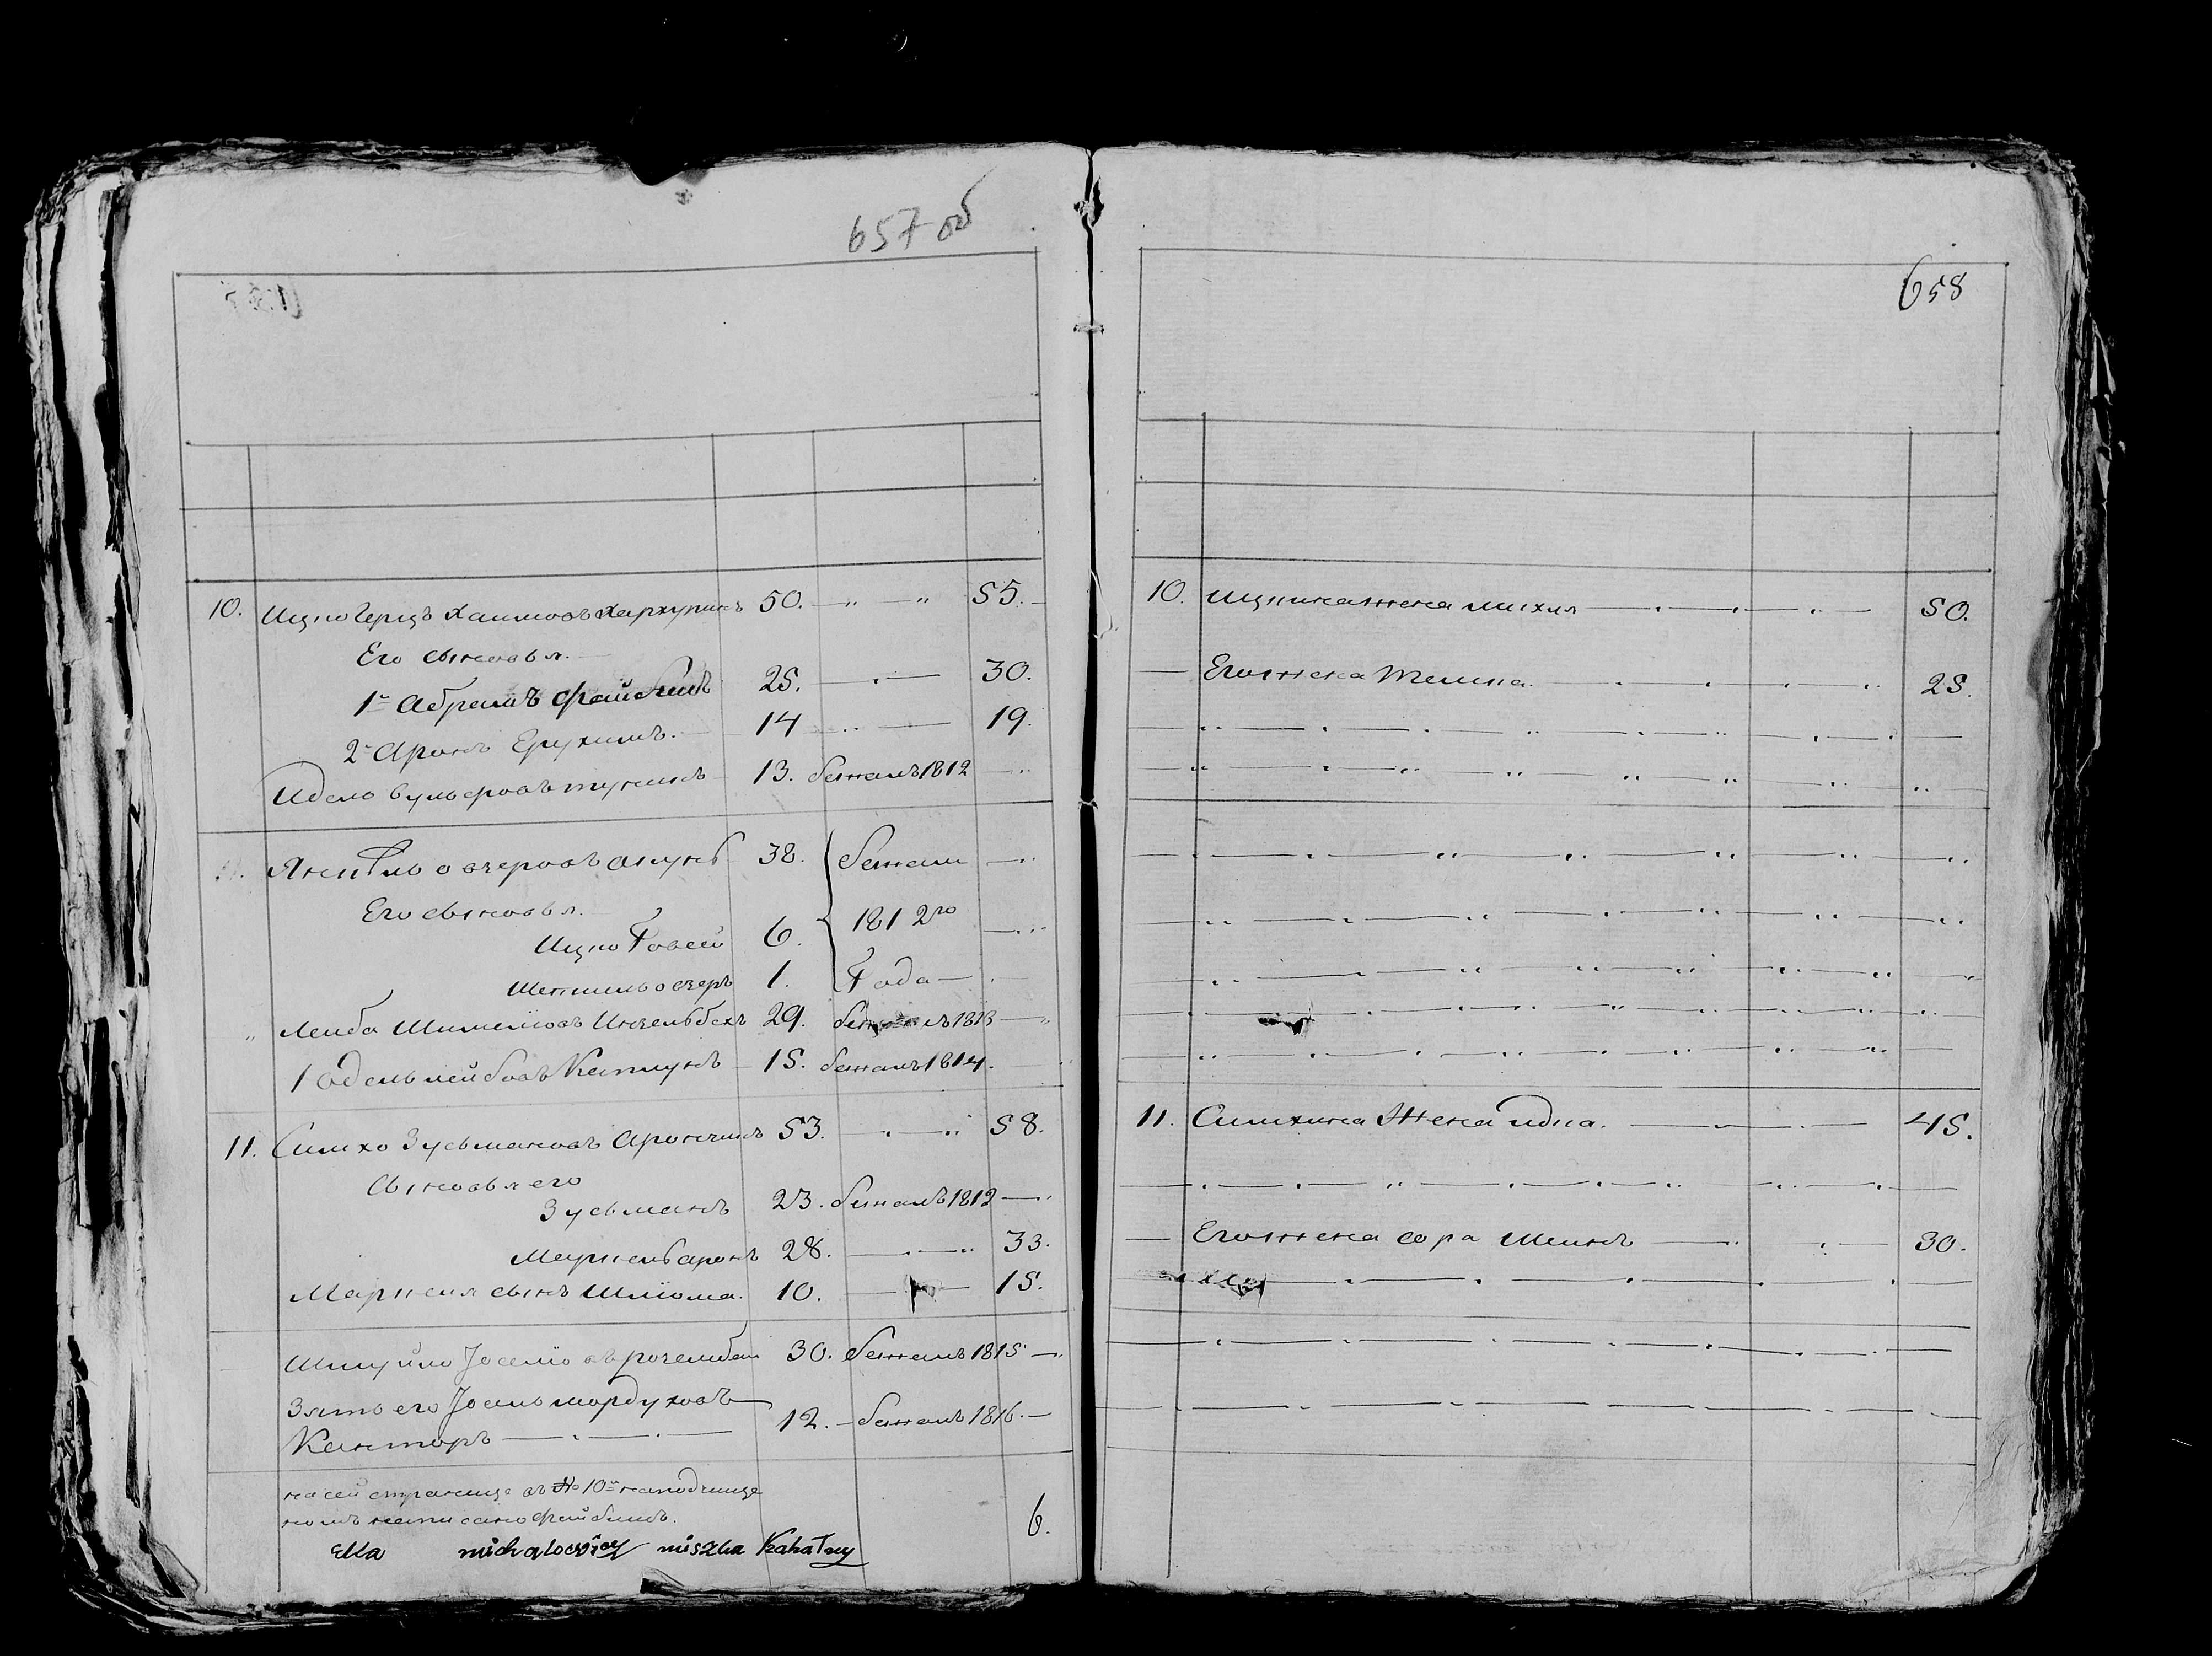 657 об
10. Ицко Герцъ Хаимовъ Хархуримъ 50. 55.
Его сыновья.
1й Абрамъ Файбишъ 25. 30.
2й Аронъ Ерухимъ. 14 19.
Идель Вульфовъ 13. бежалъ 1812
Янкель Овзеровъ 38. бежали
Его сыновья.
Ицко Говсей 6. 1812го
Шепшель Овзеръ 1. Года
Лейба Шимелiовъ 29. бежалъ 1813
Iодель Лейбовъ Каплунъ 15. бежалъ 1814.
11. Симхо Зусьмановъ Арончикъ 53. 58.
Сыновья его
Зусьманъ 23. бежалъ 1812
Меркель Аронъ 28. 33.
Маркеля сынъ Шлiома. 10. 15.
Шмуйло Iоселiовъ 30. бежалъ 1815
Зять его Iосель Мордуховъ
Канторъ 12. бежалъ 1816.
на сей странице въ № 10й на подчищенномъ написано Файбишъ.
6.
Elka michalowicz miszka Kahalny
658
10. Ицкика жена Михля 50.
Его жена 25.
11. Симхина жена Идка. 45.
Его жена Сора Шейна 30.